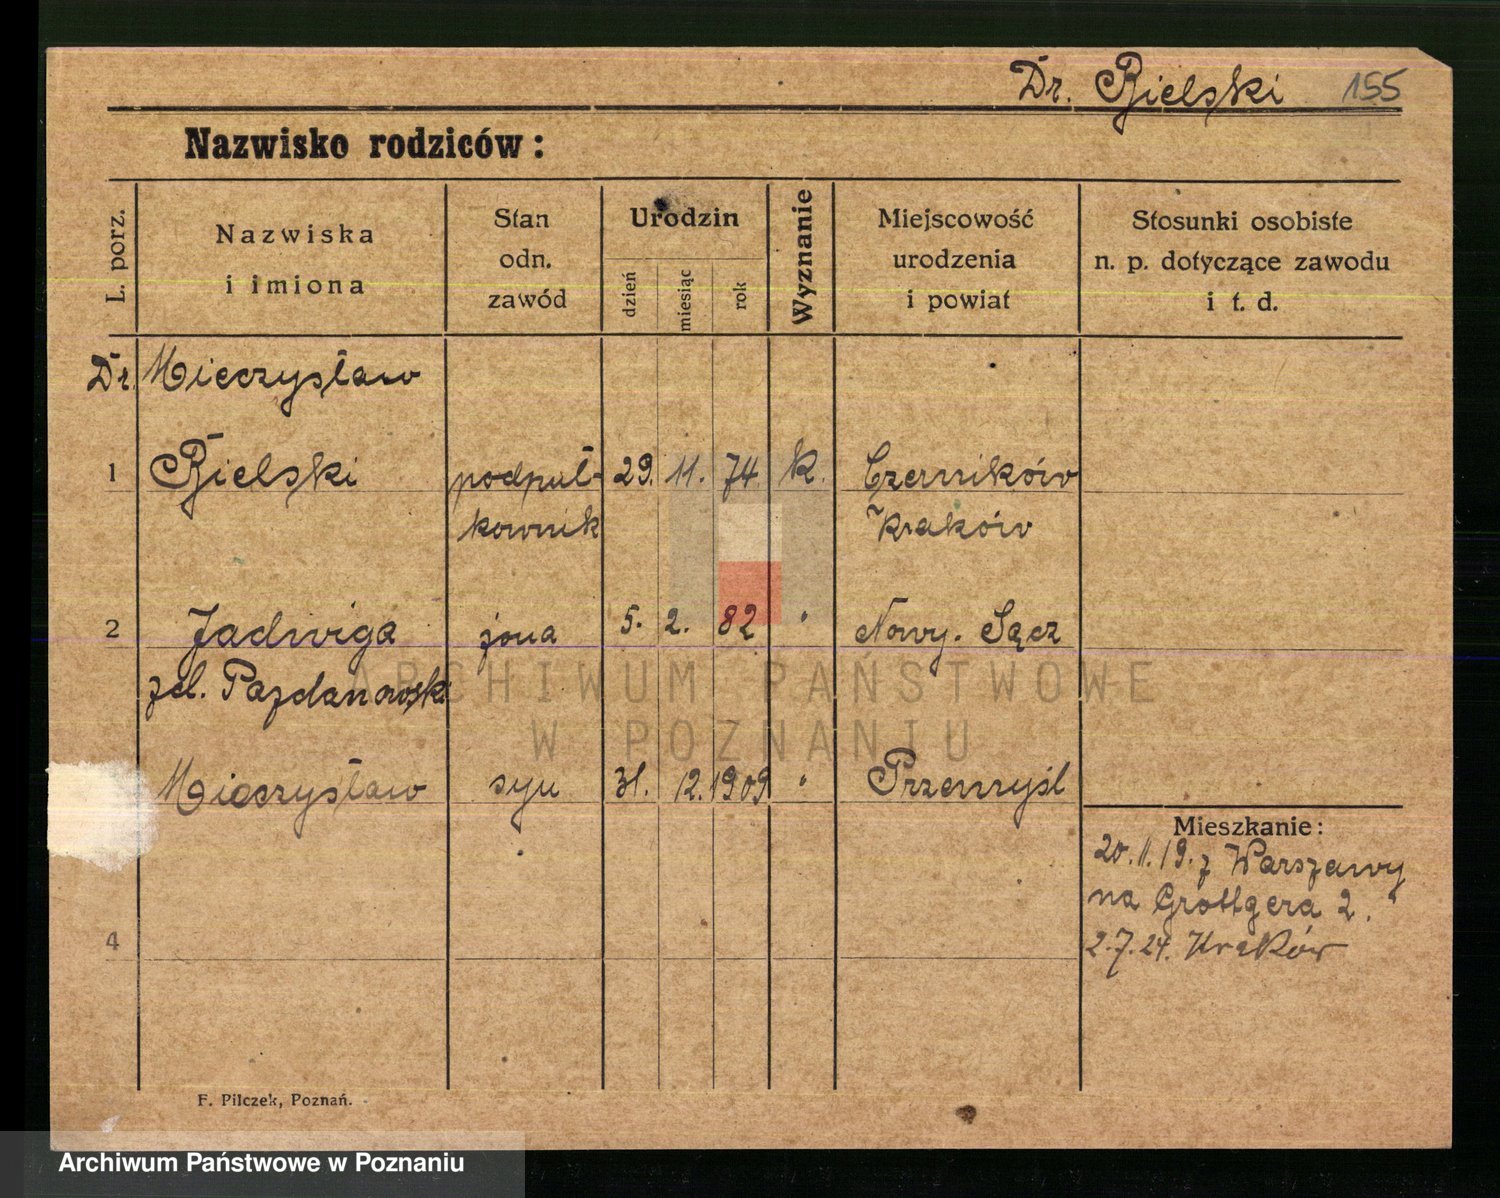 Dr. Bielski 155
Nazwisko rodziców:
L. porz.
Nazwiska
i imiona
Stan
odn.
zawód
Urodzin
dzień
miesiąc
rok
Wyznanie
Miejscowość
urodzenia
i powiat
Stosunki osobiste
n. p. dotyczące zawodu
i t. d.
Dr. Mieczysław
1 Bielski podpuł- 29. 11. 74. k. Czerników
kownik Kraków
2 Jadwiga żona 5. 2. 82 " Nowy. Sącz
żel. Pazdanowski
ARCHIWUM PAŃSTWOWE
W POZNANIU
Mieczysław syn 31. 12. 1909 " Przemyśl
Mieszkanie:
20.11.19. z Warszawy
na Grottgera 2.
4
2.7.24. Kraków
F. Pilczek, Poznań.
Archiwum Państwowe w Poznaniu